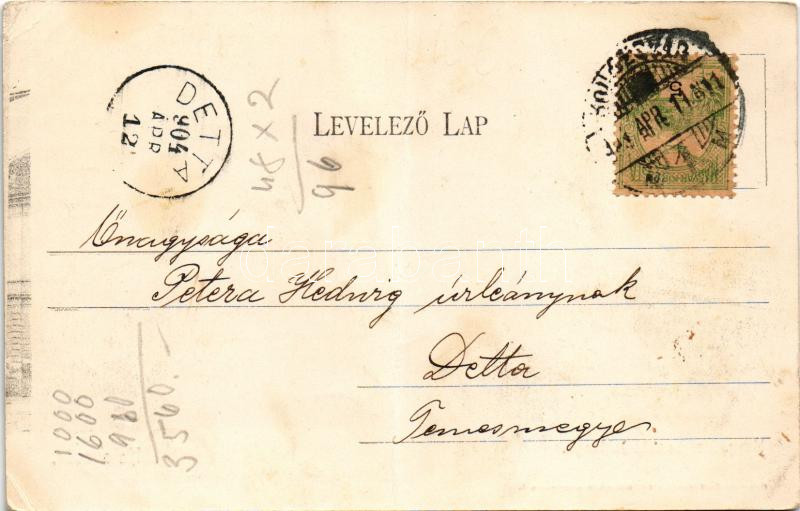 DETTA
904
APR
12
LEVELEZŐ LAP
48 x 2
96
APR. 11
Őnagysága
Petera Hedwig úrleánynak
Detta
Temesmegye
1000
1600
960
3560.-